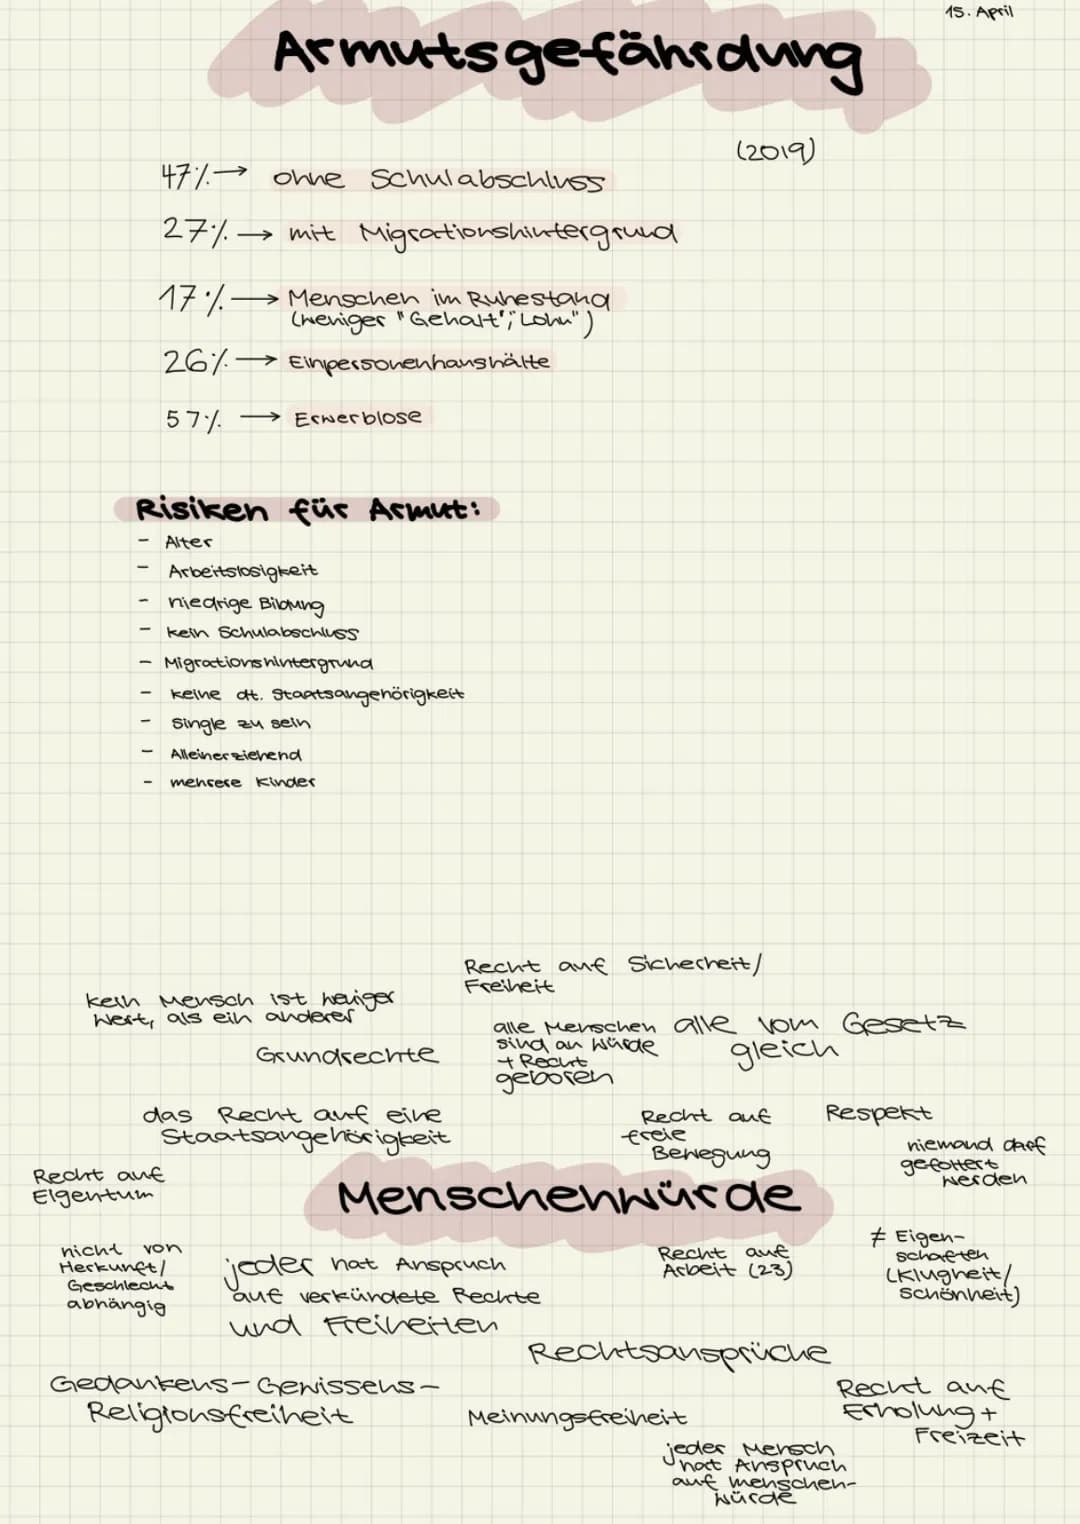 15. April
Armutsgefährdung
(2019)
47% → ohne Schulabschluss
27% → mit Migrationshintergrund
17% → Menschen im Ruhestand
(weniger "Gehalt", "Lohn")
26% → Einpersonenhaushälte
57% → Erwerblose
Risiken für Armut:
- Alter
- Arbeitslosigkeit
- niedrige Bildung
- kein Schulabschluss
- Migrationshintergrund
- keine dt. Staatsangehörigkeit
- Single zu sein
- Alleinerziehend
- mehrere Kinder
Recht auf Sicherheit/
Freiheit
kein Mensch ist weniger
Wert, als ein anderer
alle Menschen
sind an Würde
+ Recht
geboren
alle vom Gesetz
gleich
Grundrechte
das Recht auf eine
Staatsangehörigkeit
Recht auf
freie
Bewegung
Respekt
niemand darf
gefoltert
werden
Recht auf
Eigentum
Menschenwürde
nicht von
Herkunft/
Geschlecht
abhängig
jeder hat Anspruch
auf verkündete Rechte
und Freiheiten
Recht auf
Arbeit (23)
≠ Eigen-
schaften
(Klugheit/
Schönheit)
Rechtsansprüche
Gedankens-Gewissens-
Religionsfreiheit
Meinungsfreiheit
Recht auf
Erholung +
Freizeit
jeder Mensch
hat Anspruch
auf menschen-
würde